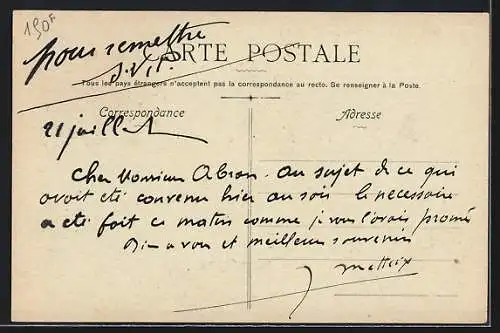 150F
pour remettre
S.V.P.
CARTE POSTALE
Tous les pays étrangers n'acceptent pas la correspondance au recto. Se renseigner à la Poste.
Correspondance
Adresse
21 juillet
Cher Monsieur Abran. Au sujet de ce qui
avait été convenu hier au soir le nécessaire
a été fait ce matin comme je vous l'avais promis
Bien a vous et meilleur souvenir